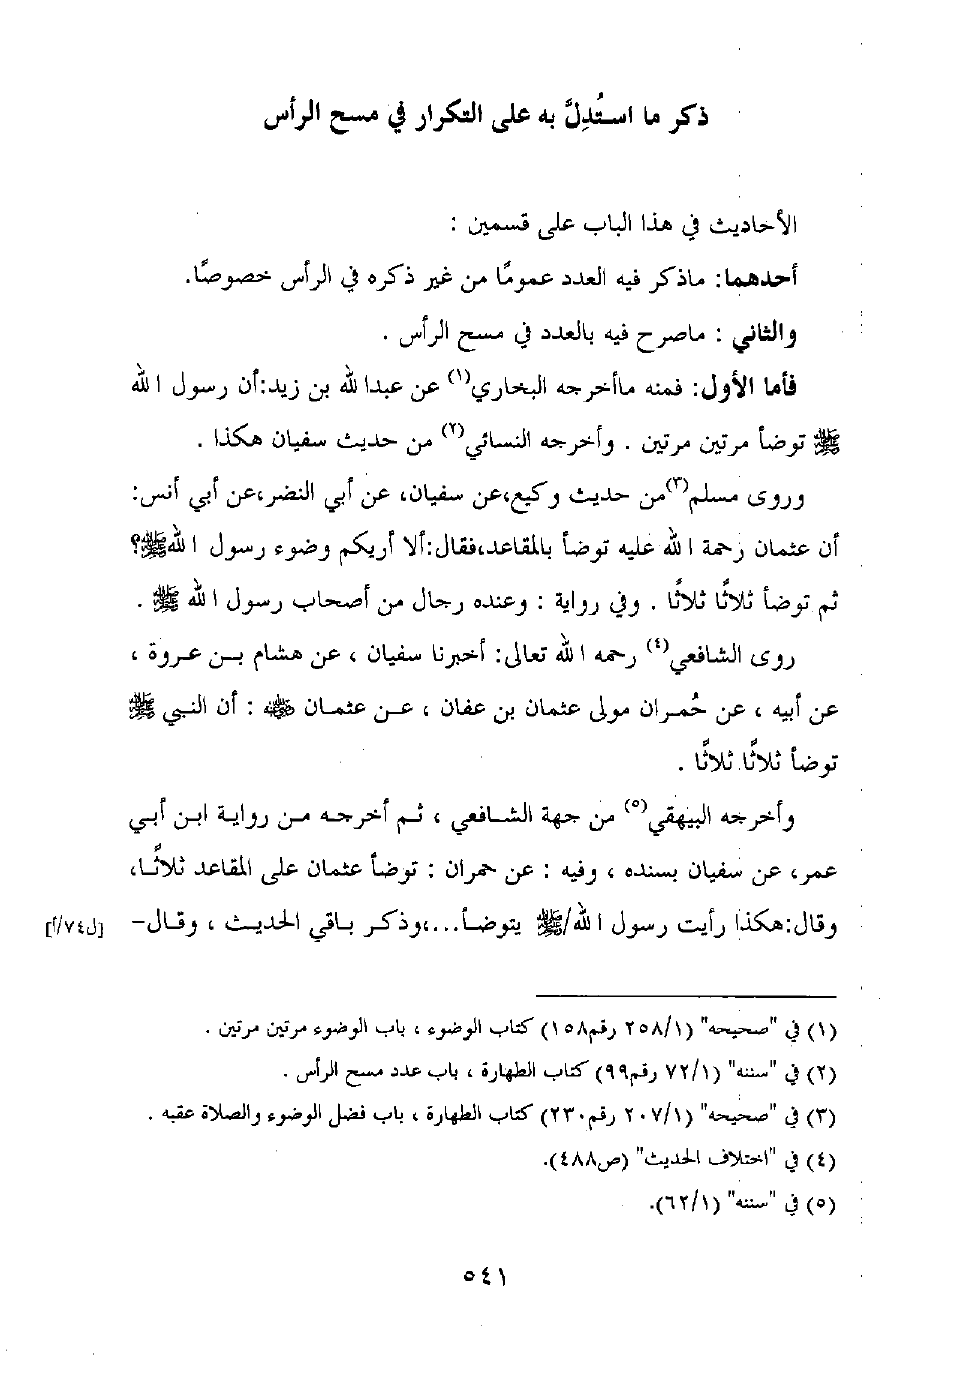 ذكر ما استُدِلَّ به على التكرار في مسح الرأس
الأحاديث في هذا الباب على قسمين :
أحدهما: ماذكر فيه العدد عمومًا من غير ذكره في الرأس خصوصًا.
والثاني : ماصرح فيه بالعدد في مسح الرأس .
فأما الأول: فمنه ماأخرجه البخاري(١) عن عبدا لله بن زيد:أن رسول ا لله
ﷺ توضأ مرتين مرتين . وأخرجه النسائي(٢) من حديث سفيان هكذا .
وروى مسلم(٣)من حديث وكيع،عن سفيان، عن أبي النضر،عن أبي أنس:
أن عثمان رحمة ا لله عليه توضأ بالمقاعد،فقال:ألا أريكم وضوء رسول ا للهﷺ؟
ثم توضأ ثلاثًا ثلاثًا . وفي رواية : وعنده رجال من أصحاب رسول ا لله ﷺ .
روى الشافعي(٤) رحمه ا لله تعالى: أخبرنا سفيان ، عن هشام بن عروة ،
عن أبيه ، عن حُمران مولى عثمان بن عفان ، عن عثمان ﷺ : أن النبي ﷺ
توضأ ثلاثًا ثلاثًا .
وأخرجه البيهقي(٥) من جهة الشافعي ، ثم أخرجه من رواية ابن أبي
عمر، عن سفيان بسنده ، وفيه : عن حمران : توضأ عثمان على المقاعد ثلاثًا،
وقال:هكذا رأيت رسول ا لله/ﷺ يتوضأ...،وذكر باقي الحديث ، وقال- [ل٧٤/أ]
(١) في "صحيحه" (٢٥٨/١ رقم١٥٨) كتاب الوضوء ، باب الوضوء مرتين مرتين .
(٢) في "سننه" (٧٢/١ رقم٩٩) كتاب الطهارة ، باب عدد مسح الرأس .
(٣) في "صحيحه" (٢٠٧/١ رقم٢٣٠) كتاب الطهارة ، باب فضل الوضوء والصلاة عقبه .
(٤) في "اختلاف الحديث" (ص٤٨٨).
(٥) في "سننه" (٦٢/١).
٥٤١